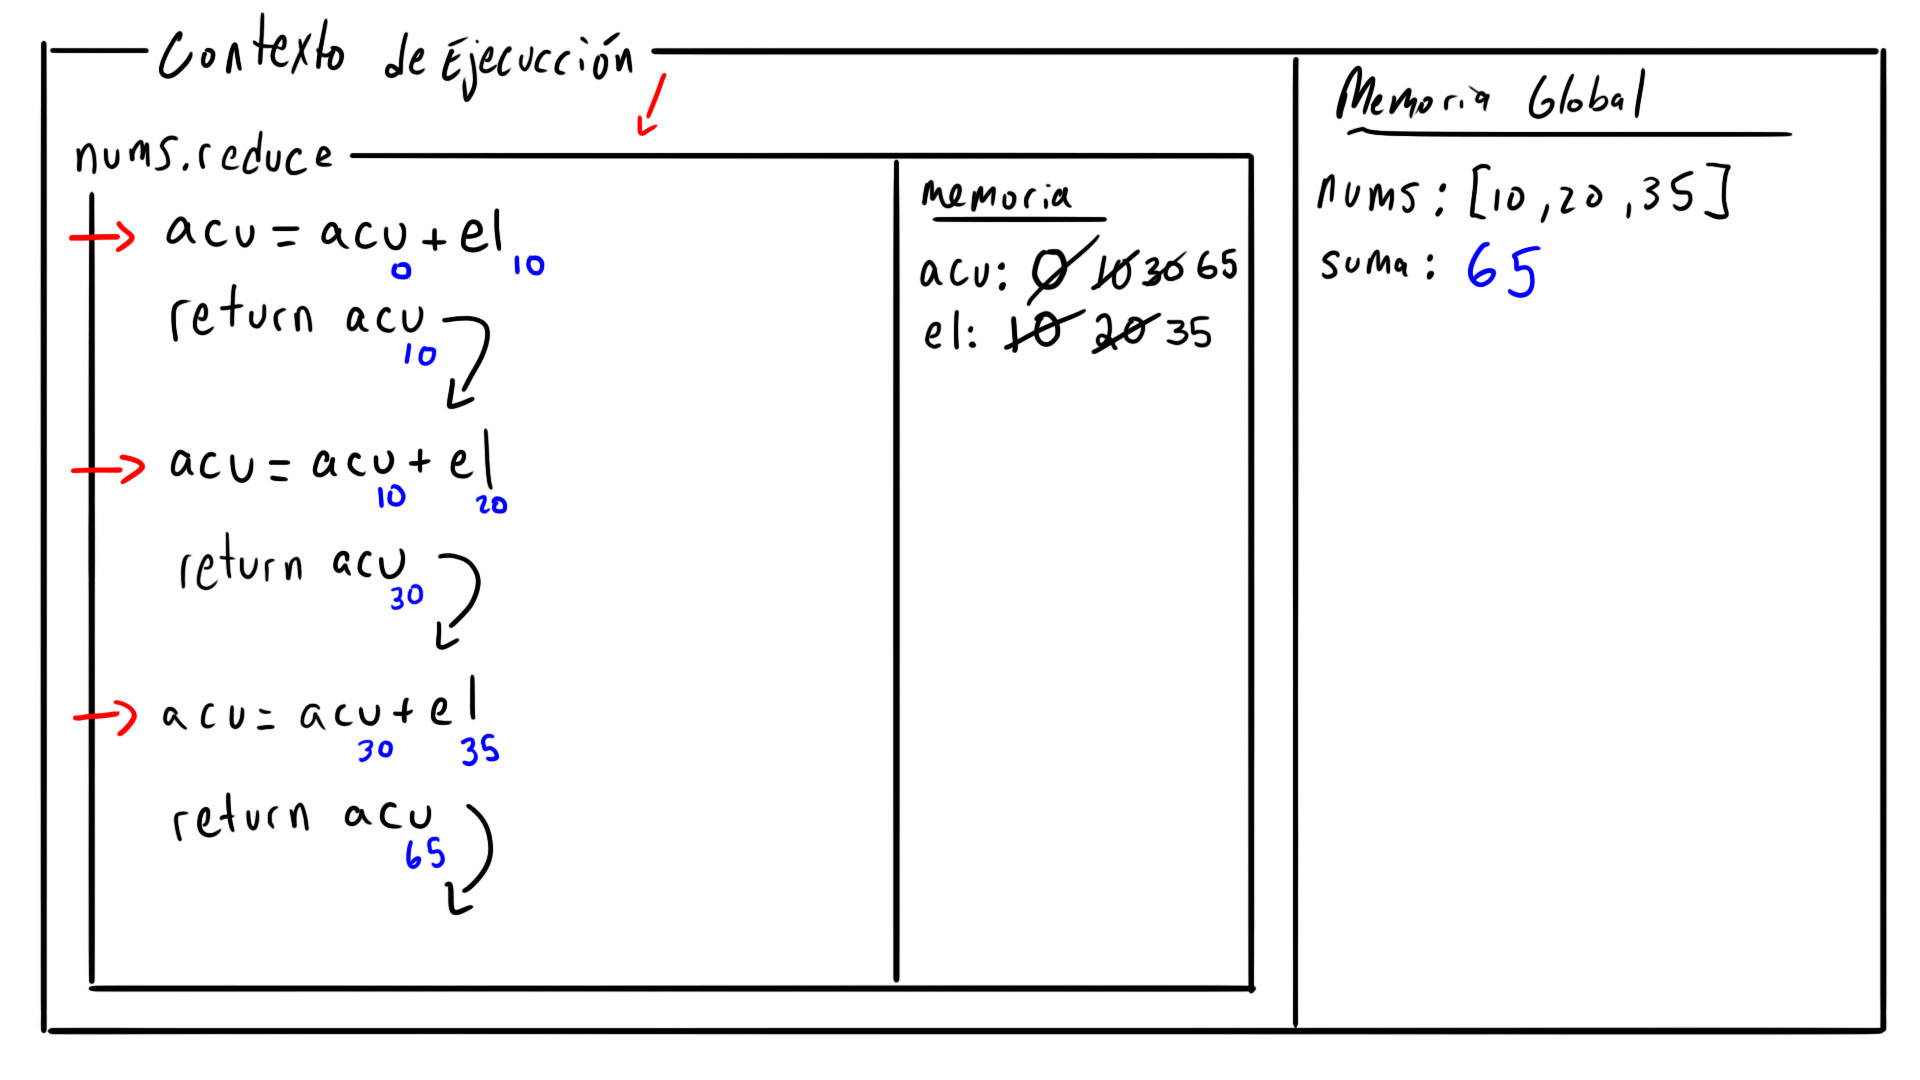 Contexto de Ejecucción
nums.reduce
acu = acu + el
0 10
return acu
10
acu = acu + el
10 20
return acu
30
acu = acu + el
30 35
return acu
65
memoria
acu: 0 10 30 65
el: 10 20 35
Memoria Global
nums: [10, 20, 35]
suma: 65